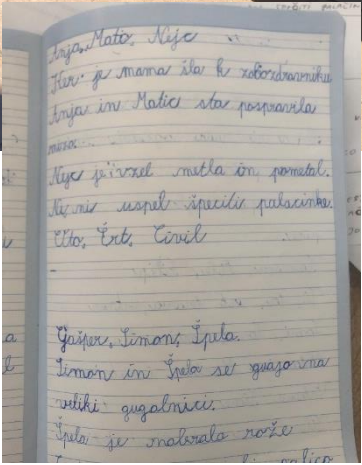 Anja, Matic, Nejc
Ker je mama šla k zobozdravniku
Anja in Matic sta pospravila
Nejc je vzel metla in pometal.
Ne ni uspel špeciti palacinke.
Oto, Črt, Civil
Gašper, Simon, Špela.
Simon in Špela se gugajo na
veliki gugalnici.
Špela je nabrala rože